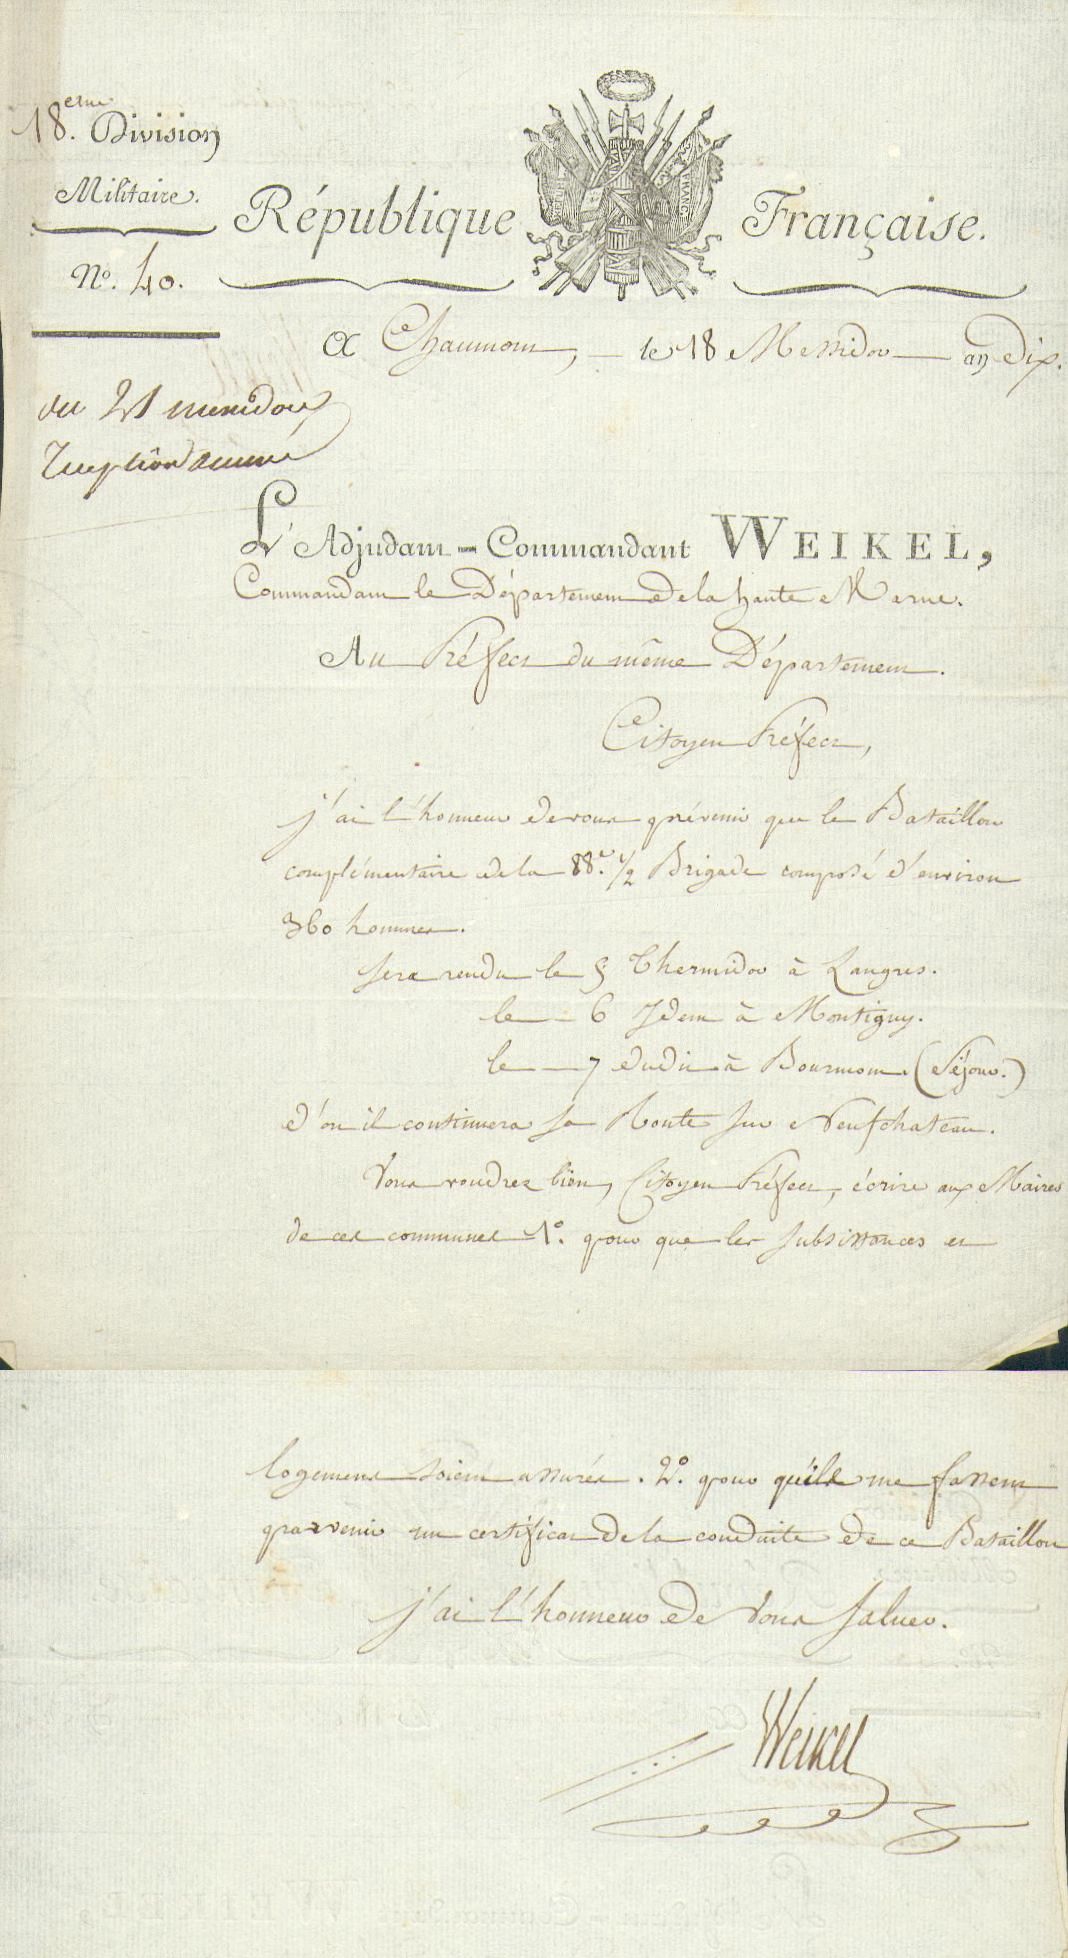 18.eme Division
Militaire.
République Française.
N.o 40.
A Chaumont, le 18 Messidor an dix.
du 21 messidor
Reception
L'Adjudant-Commandant WEIKEL,
Commandant le Département de la haute Marne.
Au Préfect du même Département.
Citoyen Préfect,
j'ai l'honneur de vous prévenir que le Bataillon
complémentaire de la 88.e 1/2 Brigade composé d'environ
360 hommes.
sera rendu le 5 Thermidor à Langres.
le 6 Idem à Montigny.
le 7 dudit à Bourmont. (Séjour.)
d'ou il continuera sa Route sur Neufchateau.
Vous voudrez bien, Citoyen Préfect, écrire aux Maires
de ces communes 1.o pour que les subsistances et
logement soient assurés. 2.o pour qu'ils me fassent
parvenir un certificat de la conduite de ce Bataillon
j'ai l'honneur de vous saluer.
Weikel